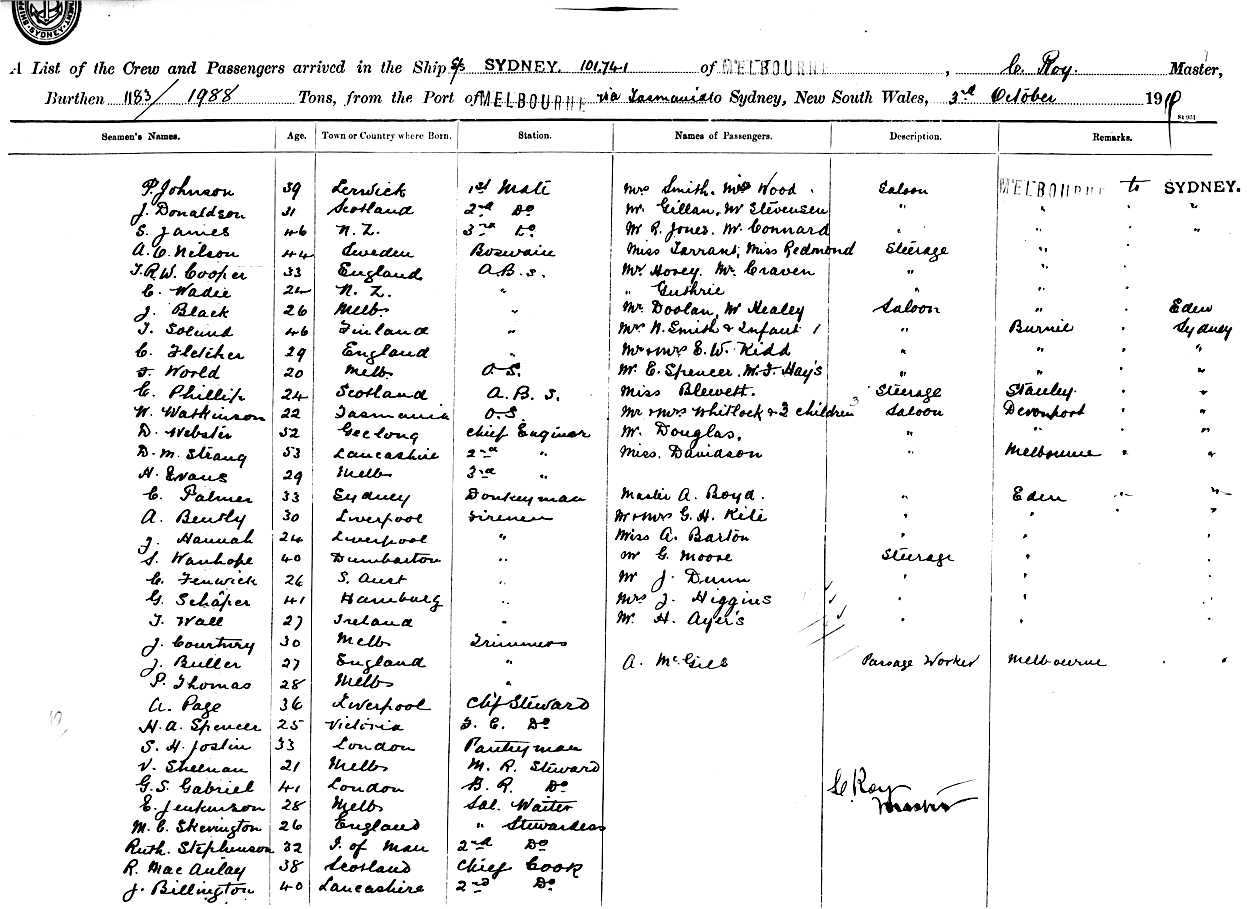 SYDNEY.
A List of the Crew and Passengers arrived in the Ship S/s SYDNEY. 101,741 of MELBOURNE, C. Roy. Master,
Burthen 1183/1988 Tons, from the Port of MELBOURNE via Tasmania to Sydney, New South Wales, 3rd October 191
Seamen's Names. Age. Town or Country where Born. Station. Names of Passengers. Description. Remarks.
P. Johnson 39 Lerwick 1st Mate Mrs Smith. Wood Saloon MELBOURNE to SYDNEY.
J. Donaldson 31 Scotland 2nd Do Mr. Gillan, Mr Stevensen " " " "
S. James 46 N. Z. 3rd Do Mr R. Jones. Mr. Connard " " " "
A. C. Nilson 44 Sweden Boswain Miss Tarrant, Miss Redmond Steerage " "
T.R.W. Cooper 33 England A.B.s. Mr Hovey. Mr. Craven " " "
C. Wadie 24 N. Z. " " Guthrie " " "
J. Black 26 Melb " Mr. Doolan, Mr Healey Saloon " " Eden
T. Solund 46 Finland " Mrs N. Smith & Infant 1 " Burnie " Sydney
C. Fletcher 29 England " Mr & Mrs E. W. Kidd " " " "
World 20 Melb. O.S. Mr. E. Spencer. W. J. Hay's " " " "
C. Phillip 24 Scotland A. B. S. Miss Blewett. Steerage Stanley " "
W. Watkinson 22 Tasmania O.S. Mr & Mrs Whitlock & 3 children 3 Saloon Devonport " "
D. Webster 52 Geelong Chief Enginer Mr. Douglas, " " " "
D. M. Strang 53 Lancashire 2nd " Miss. Davidson " Melbourne " "
H. Evans 29 Melb 3rd "
C. Palmer 33 Sydney Donkeyman Master A. Boyd. " Eden " "
A. Bently 30 Liverpool Firemen Mr & Mrs G. H. Kile " " " "
J. Hannah 24 Liverpool " Miss A. Barton " " " "
S. Wanhope 40 Dumbarton " Mr G. Moore Steerage " " "
C. Fenwick 26 S. Aust " Mr J. Dunn " " " "
G. Schäper 41 Hamburg " Mrs J. Higgins " " " "
T. Wall 27 Ireland " Mr. H. Ayer's " " " "
J. Courtney 30 Melb Trimmers
J. Buller 27 England " A. McGill Passage Worker Melbourne " "
P. Thomas 28 Melb "
A. Page 36 Liverpool Chf Steward
H. A. Spencer 25 Victoria Do
S. H. Joslin 33 London Pantryman
V. Sheenan 21 Melb M. R. Steward
G. S. Gabriel 41 London B. R. Do
C. Roy
Master
E. Jenkinson 28 Melb Sal. Waiter
M. E. Skevington 26 England " Stewardess
Ruth. Stephenson 32 I. of Man 2nd Do
R. Mac Aulay 38 Scotland Chief Cook
J. Billington 40 Lancashire 2nd Do